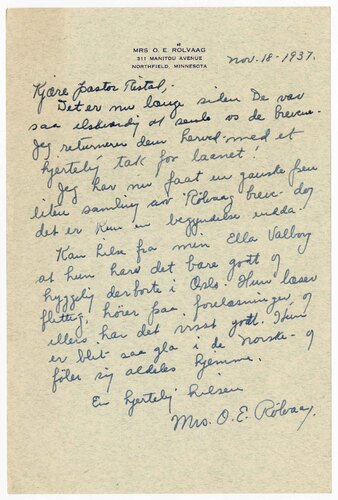 MRS O. E. ROLVAAG
311 MANITOU AVENUE
NORTHFIELD, MINNESOTA
Nov. 18 - 1937.
Kjære pastor Ristad,-
Det er nu længe siden De var
saa elskværdig at sende os de brevene.
Jeg returnerer dem herved med et
hjertelig tak for laanet!
Jeg har nu faat en ganske pen
liten samling av Rölvaag breve - dog
det er kun en begyndelse endda.
Kan hilse fra min Ella Valborg
at hun hard det bare godt og
hyggelig derborte i Oslo. Hun læser
flittig, hörer paa forelæsninger, og
ellers har det visst godt. Hun
er blit saa gla i de norske - og
föler sig aldeles hjemme.
En hjertelig hilsen
Mrs. O. E. Rölvaag.